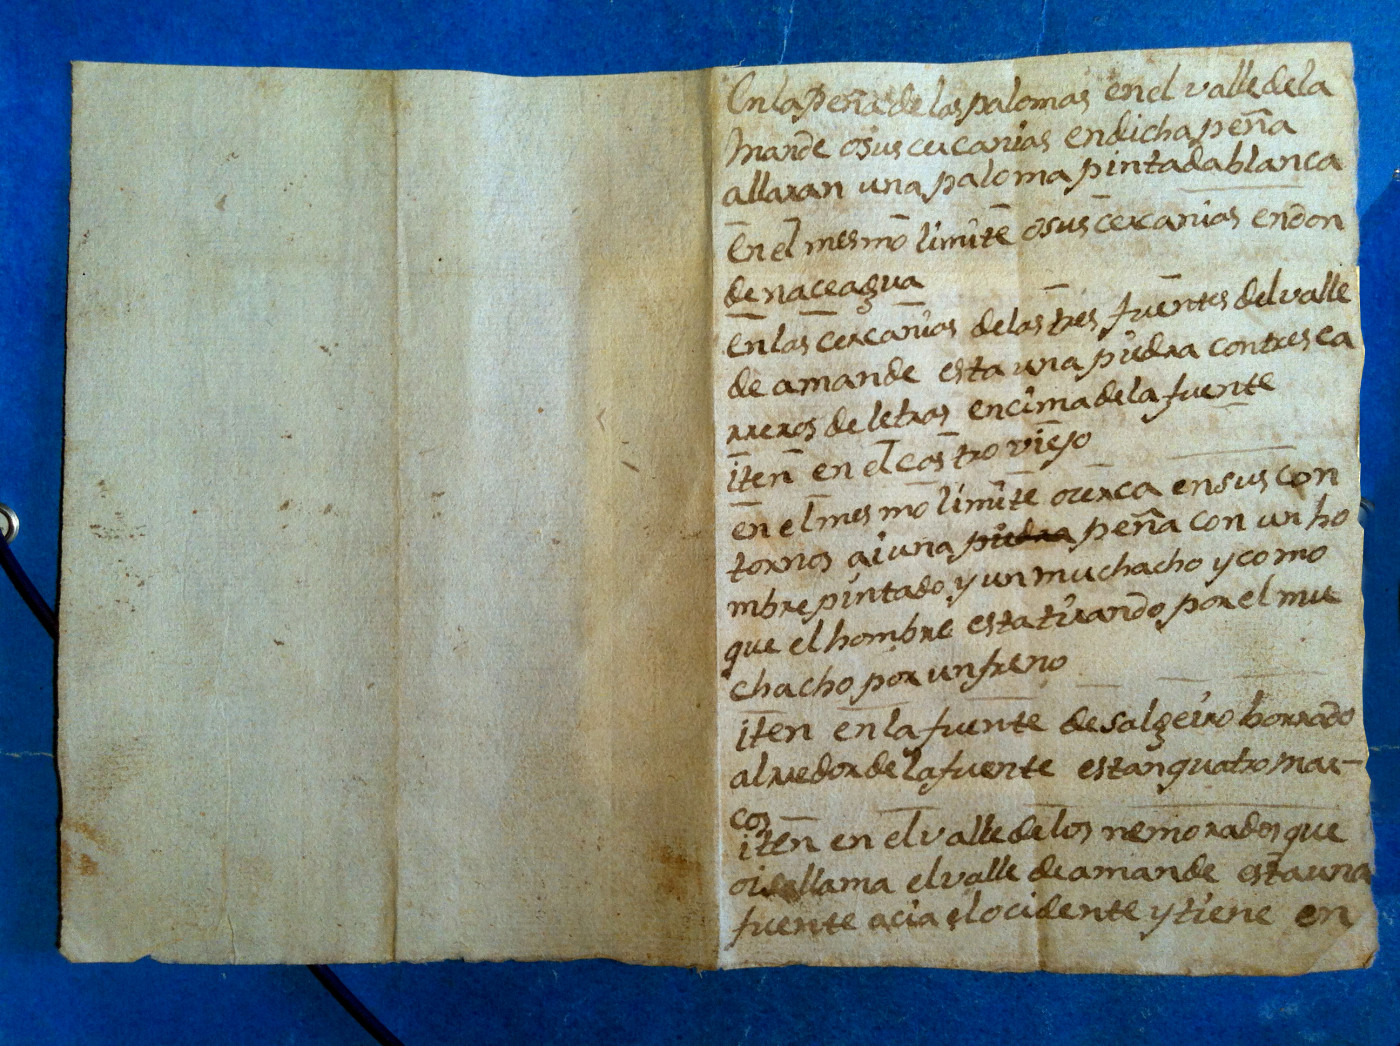 En la peña de las palomas en el valle de la
mande o sus cercanias en dicha peña
allaran una paloma pintada blanca
En el mesmo limite o sus cercanias en don
de nace agua
en las cercanias de las tres fuentes del valle
de amande esta una piedra con tres ca
rreros de letras encima de la fuente
iten en el castro viejo
en el mesmo limite o cerca en sus con
tornos ai una piedra peña con un ho
mbre pintado y un muchacho y como
que el hombre esta tirando por el mu
chacho por un freno
iten en la fuente de salgeiro borrado
alrredor de la fuente estan quatro mar-
cos
iten en el valle de los nemorados que
oi llama el valle de amande esta una
fuente acia el ocidente y tiene en